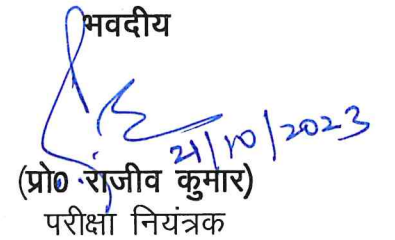 भवदीय
21/10/2023
(प्रो0 राजीव कुमार)
परीक्षा नियंत्रक